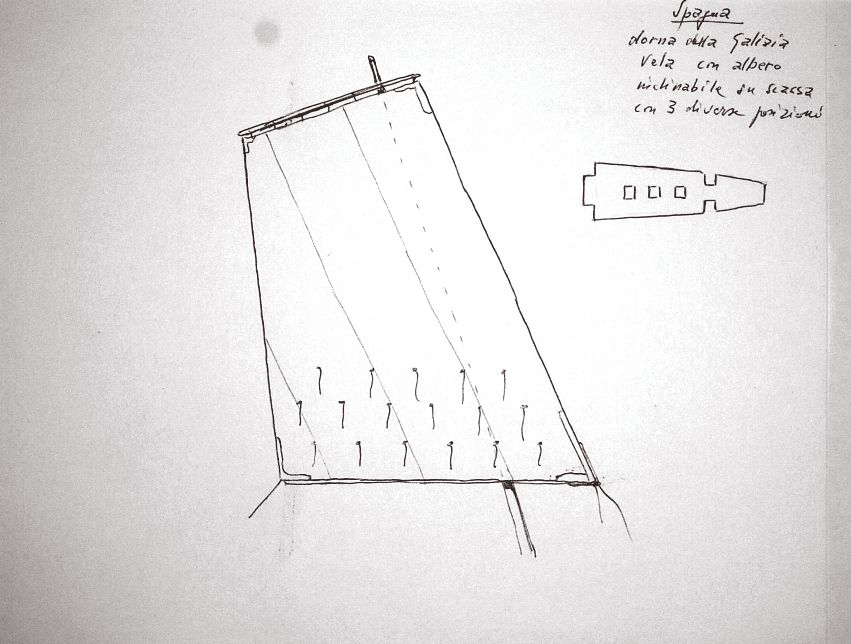 Spagna
dorna della Galizia
Vela con albero
inclinabile su scassa
con 3 diverse posizioni